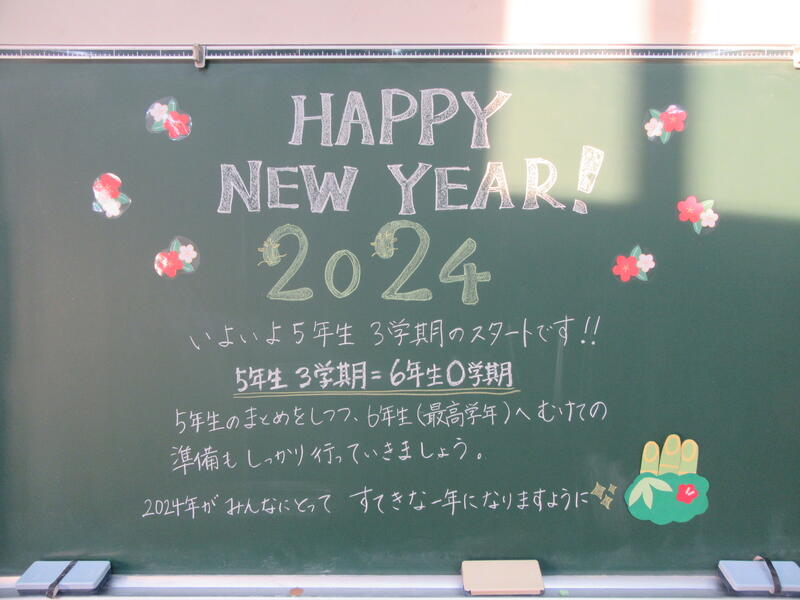 HAPPY
NEW YEAR!
2024
いよいよ5年生 3学期のスタートです!!
5年生 3学期=6年生0学期
5年生のまとめをしつつ、6年生(最高学年)へむけての
準備もしっかり行っていきましょう。
2024年がみんなにとって すてきな一年になりますように